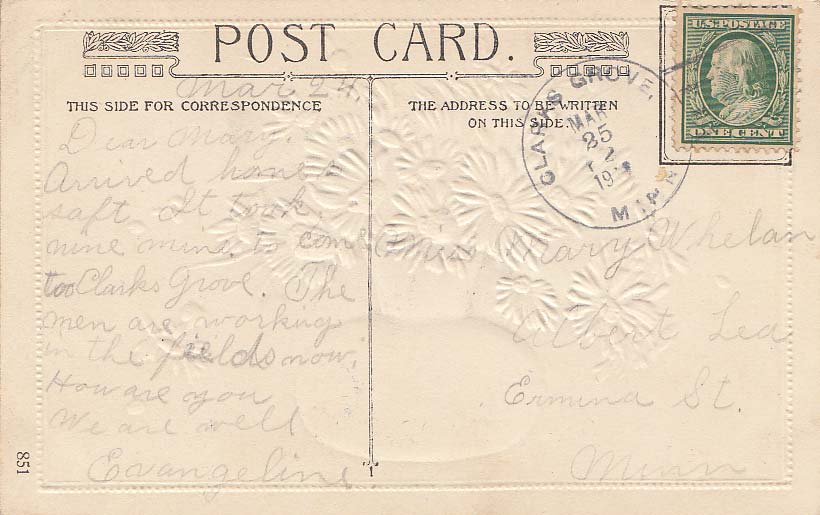 POST CARD.
THIS SIDE FOR CORRESPONDENCE
THE ADDRESS TO BE WRITTEN
ON THIS SIDE.
U.S. POSTAGE
ONE CENT
CLARKS GROVE,
MAR
25
MINN
Mar 24,
Dear Mary.
Arrived home
saft. It took
nine mins. to come
too Clarks Grove. The
men are working
in the fields now.
How are you
We are well
Evangeline
Miss Mary Whelan
Albert Lea
Ermina St.
Minn
851
1